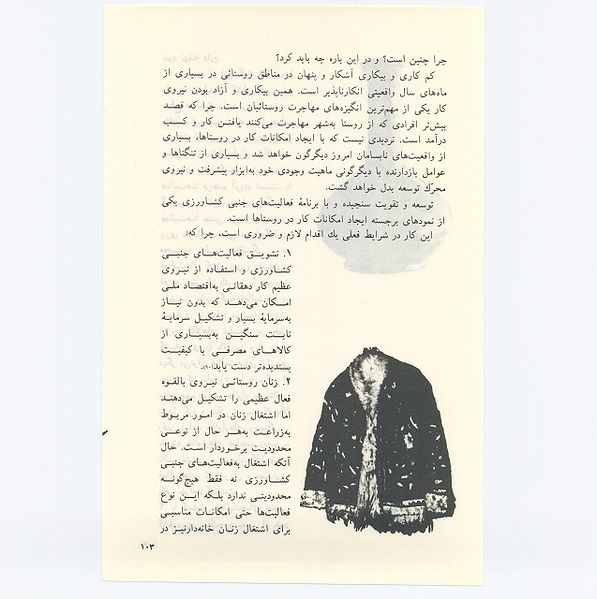 چرا چنین است؟ و در این باره چه باید کرد؟
کم کاری و بیکاری آشکار و پنهان در مناطق روستائی در بسیاری از
ماه‌های سال واقعیتی انکارناپذیر است. همین بیکاری و آزاد بودن نیروی
کار یکی از مهم‌ترین انگیزه‌های مهاجرت روستائیان است. چرا که قصد
بیش‌تر افرادی که از روستا به‌شهر مهاجرت می‌کنند یافتن کار و کسب
درآمد است. تردیدی نیست که با ایجاد امکانات کار در روستاها، بسیاری
از واقعیت‌های نابسامان امروز دیگرگون خواهد شد و بسیاری از تنگناها و
عوامل بازدارنده با دیگرگونی ماهیت وجودی خود به‌ابزار پیشرفت و نیروی
محرّك توسعه بدل خواهد گشت.
توسعه و تقویت سنجیده و با برنامهٔ فعالیت‌های جنبی کشاورزی یکی
از نمودهای برجسته ایجاد امکانات کار در روستاها است.
این کار در شرایط فعلی یك اقدام لازم و ضروری است، چرا که:
۱. تشویق فعالیت‌های جنبی
کشاورزی و استفاده از نیروی
عظیم کار دهقانی به‌اقتصاد ملی
امکان می‌دهد که بدون نیاز
به‌سرمایهٔ بسیار و تشکیل سرمایهٔ
ثابت سنگین به‌بسیاری از
کالاهای مصرفی با کیفیت
پسندیده‌تر دست یابد
۲. زنان روستائی نیروی بالقوه
فعال عظیمی را تشکیل می‌دهند
اما اشتغال زنان در امور مربوط
به‌زراعت به‌هر حال از نوعی
محدودیت برخوردار است. حال
آنکه اشتغال به‌فعالیت‌های جنبی
کشاورزی نه فقط هیچ‌گونه
محدودیتی ندارد بلکه این نوع
فعالیت‌ها حتی امکانات مناسبی
برای اشتغال زنان خانه‌دارنیز در
۱۰۳